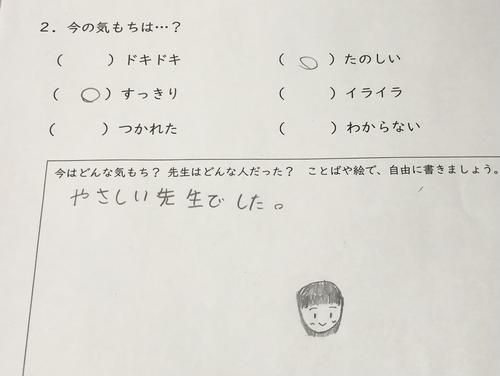 2. 今の気もちは…？
(　　) ドキドキ　　( ○ ) たのしい
( ○ ) すっきり　　(　　) イライラ
(　　) つかれた　　(　　) わからない
今はどんな気もち？ 先生はどんな人だった？ ことばや絵で、自由に書きましょう。
やさしい先生でした。